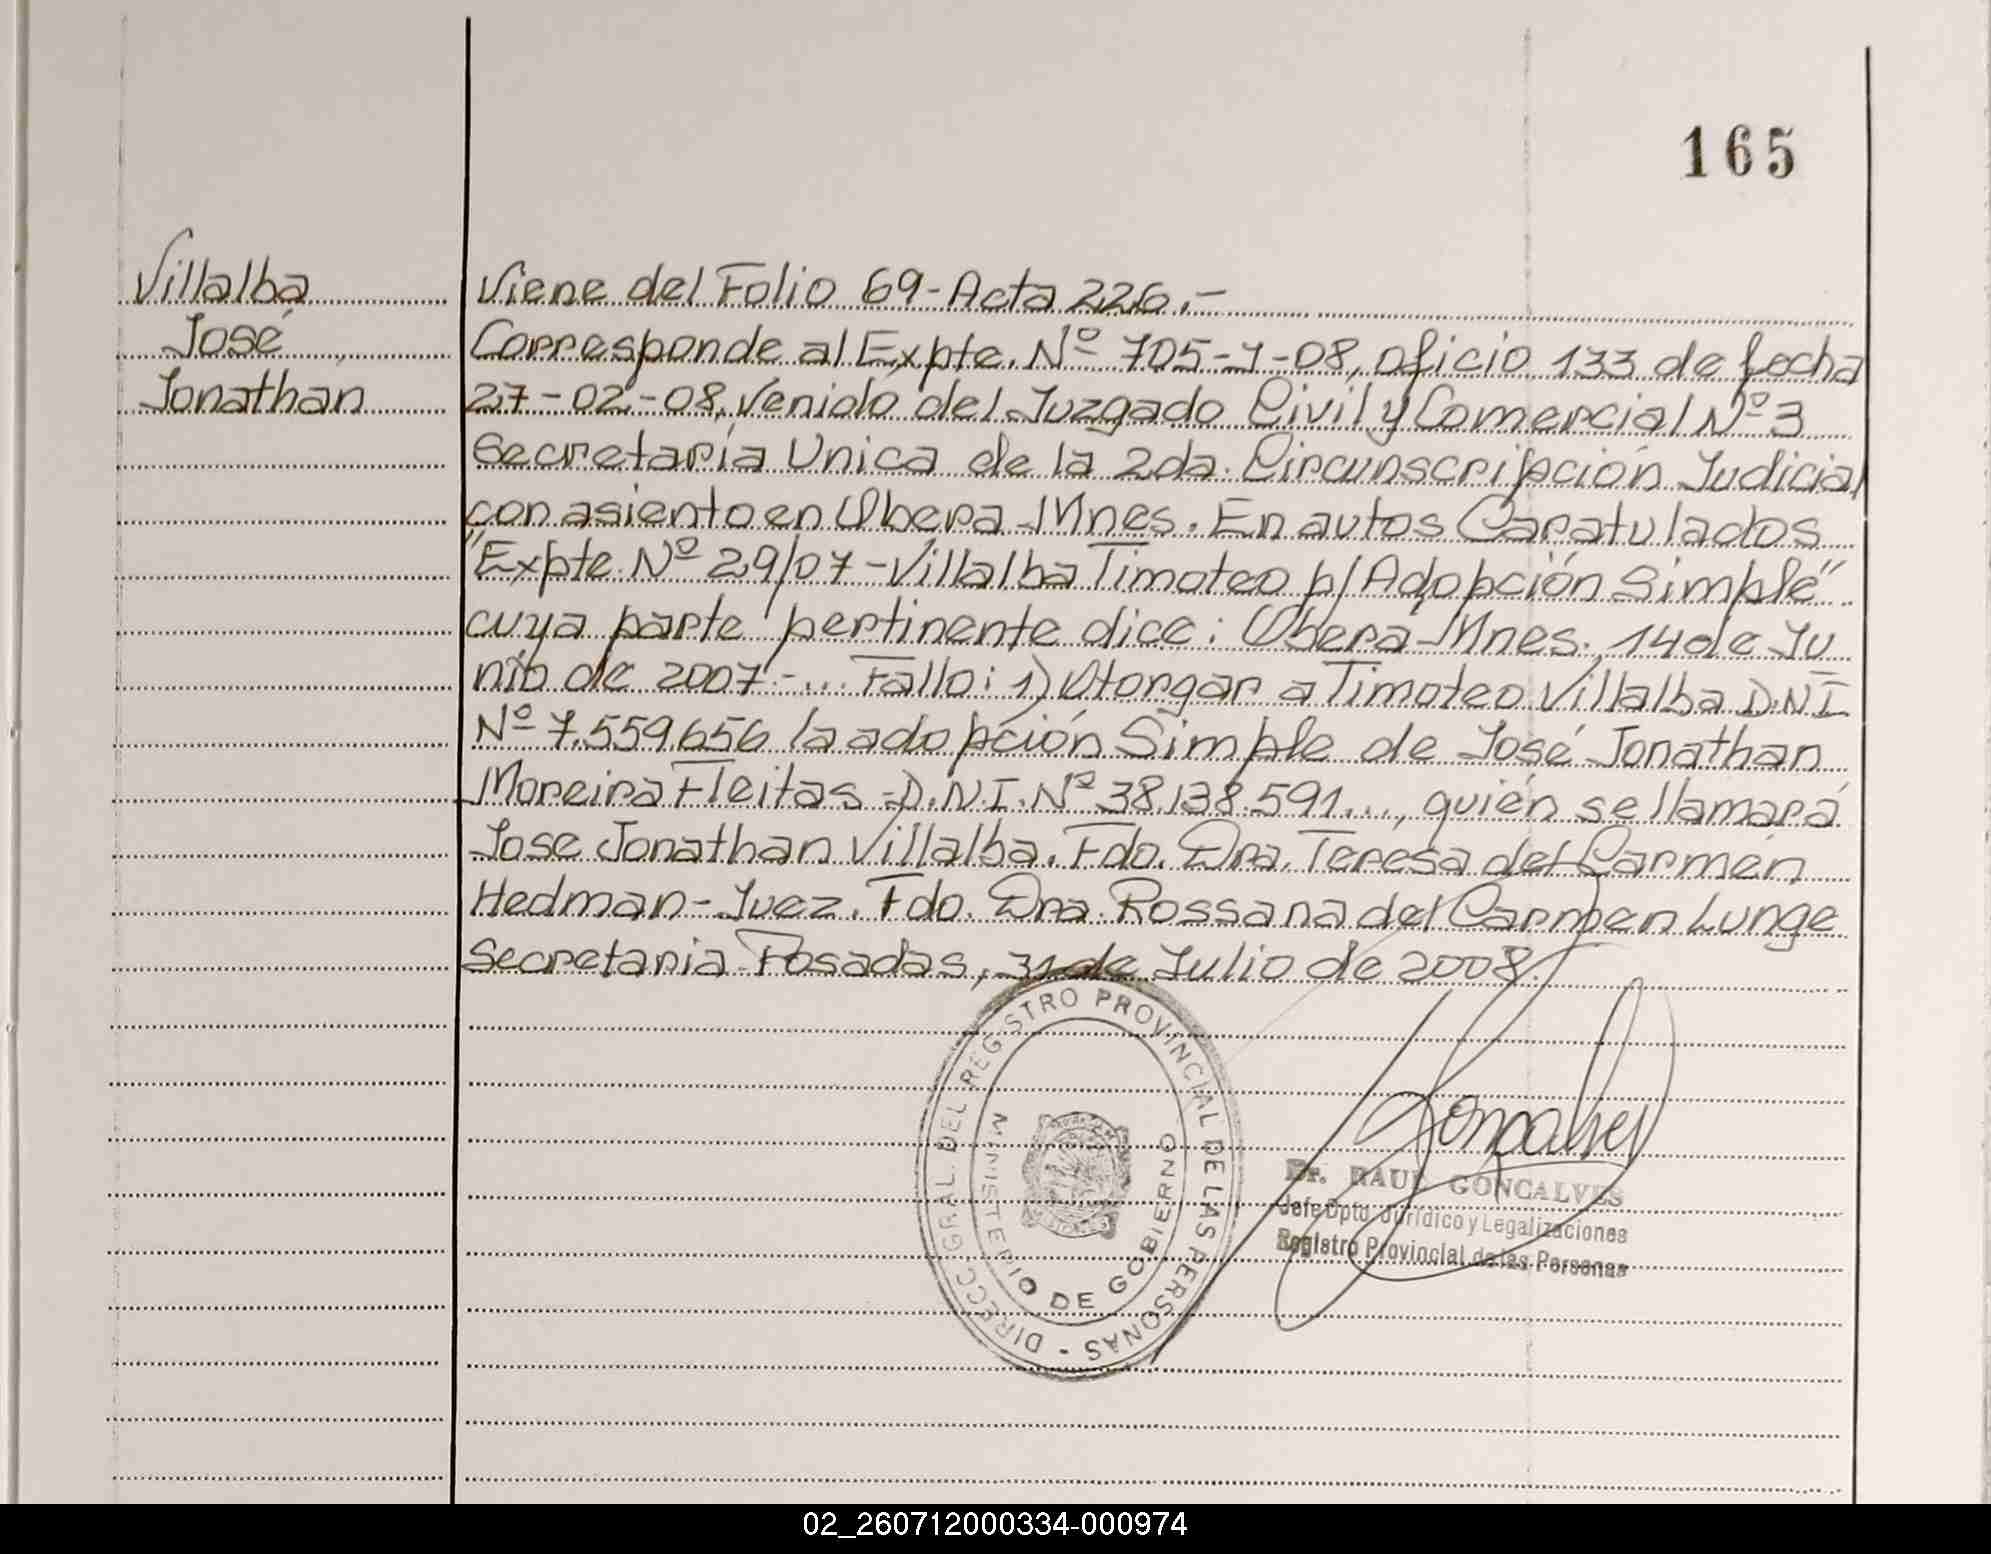 165
Villalba
José
Jonathan
Viene del Folio 69-Acta 226.-
Corresponde al Expte. Nº 705-J-08, oficio 133 de fecha
27-02-08, Venido del Juzgado Civil y Comercial Nº 3
Secretaría Unica de la 2da. Circunscripción Judicial
con asiento en Obera Mnes. En autos Caratulados
"Expte. Nº 29/07-Villalba Timoteo p/Adopción Simple"
cuya parte pertinente dice: Oberá Mnes. 14 de Ju
nio de 2007.-... Fallo: 1) Otorgar a Timoteo Villalba D.N.I
Nº 7.559.656 la adopción Simple de José Jonathan
Moreira Fleitas-D.N.I. Nº 38.138.591..., quién se llamará
Jose Jonathan Villalba. Fdo. Dra. Teresa del Carmen
Hedman-Juez. Fdo. Dra. Rossana del Carmen Lunge
Secretaria Posadas, 31 de Julio de 2008.
DIRECC. GRAL. DEL REGISTRO PROVINCIAL DE LAS PERSONAS -
MINISTERIO DE GOBIERNO
Goncalves
Dr. RAUL GONCALVES
Jefe Dpto. Jurídico y Legalizaciones
Registro Provincial de las Personas
02_260712000334-000974